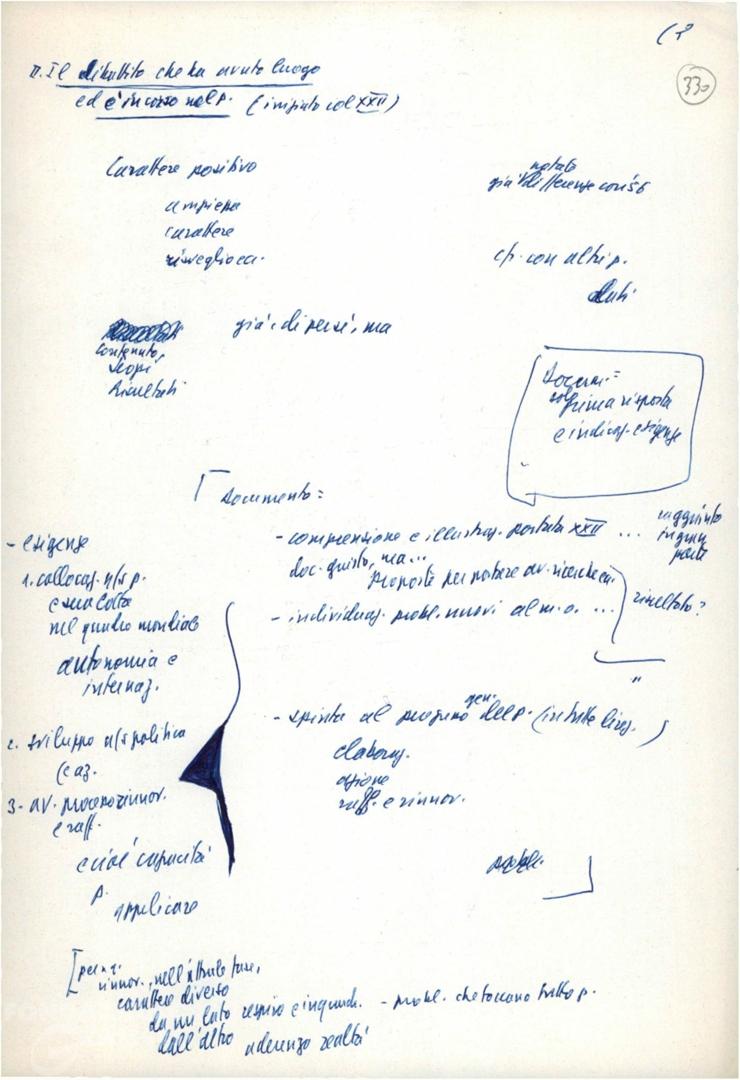 (3
330
II. Il dibattito che ha avuto luogo
ed è in corso nel p. (iniziato col XXII)
Carattere positivo
ampiezza
carattere
risveglio ca.
notate
già differenze con '56
cfr. con altri p.
già diversi, ma
contenuto,
scopi
risultati
Docum. =
solo prima risposta
e indicaz. esigenze
Documento =
- comprensione e illustraz. portata XXII ... raggiunto
in gran
parte
doc. giusto, ma...
proposte per portare av. ricerche ca.
- individuaz. probl. nuovi al m.o. ... risultato?
"
- spinta al progresso gen. del p. (in tutte direz.)
elaboraz.
azione
raff. e rinnov.
- esigenze
1. collocaz. n/s p.
e sua lotta
nel quadro mondiale
autonomia e
internaz.
2. sviluppo n/s politica
(e az.
3- av. processo rinnov.
e raff.
e cioè capacità
p.
applicare
[per n.
rinnov., nell'attuale fase,
carattere diverso
da un lato respiro e inquadr. - probl. che toccano tutto p.
dall'altro aderenza realtà